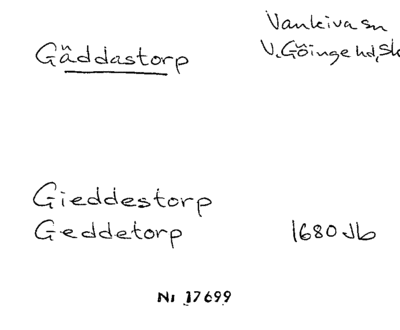 Gäddastorp
Vankiva sn
V. Göinge hd, Sk
Gieddestorp
Geddetorp 1680 Jb
Nr 17699